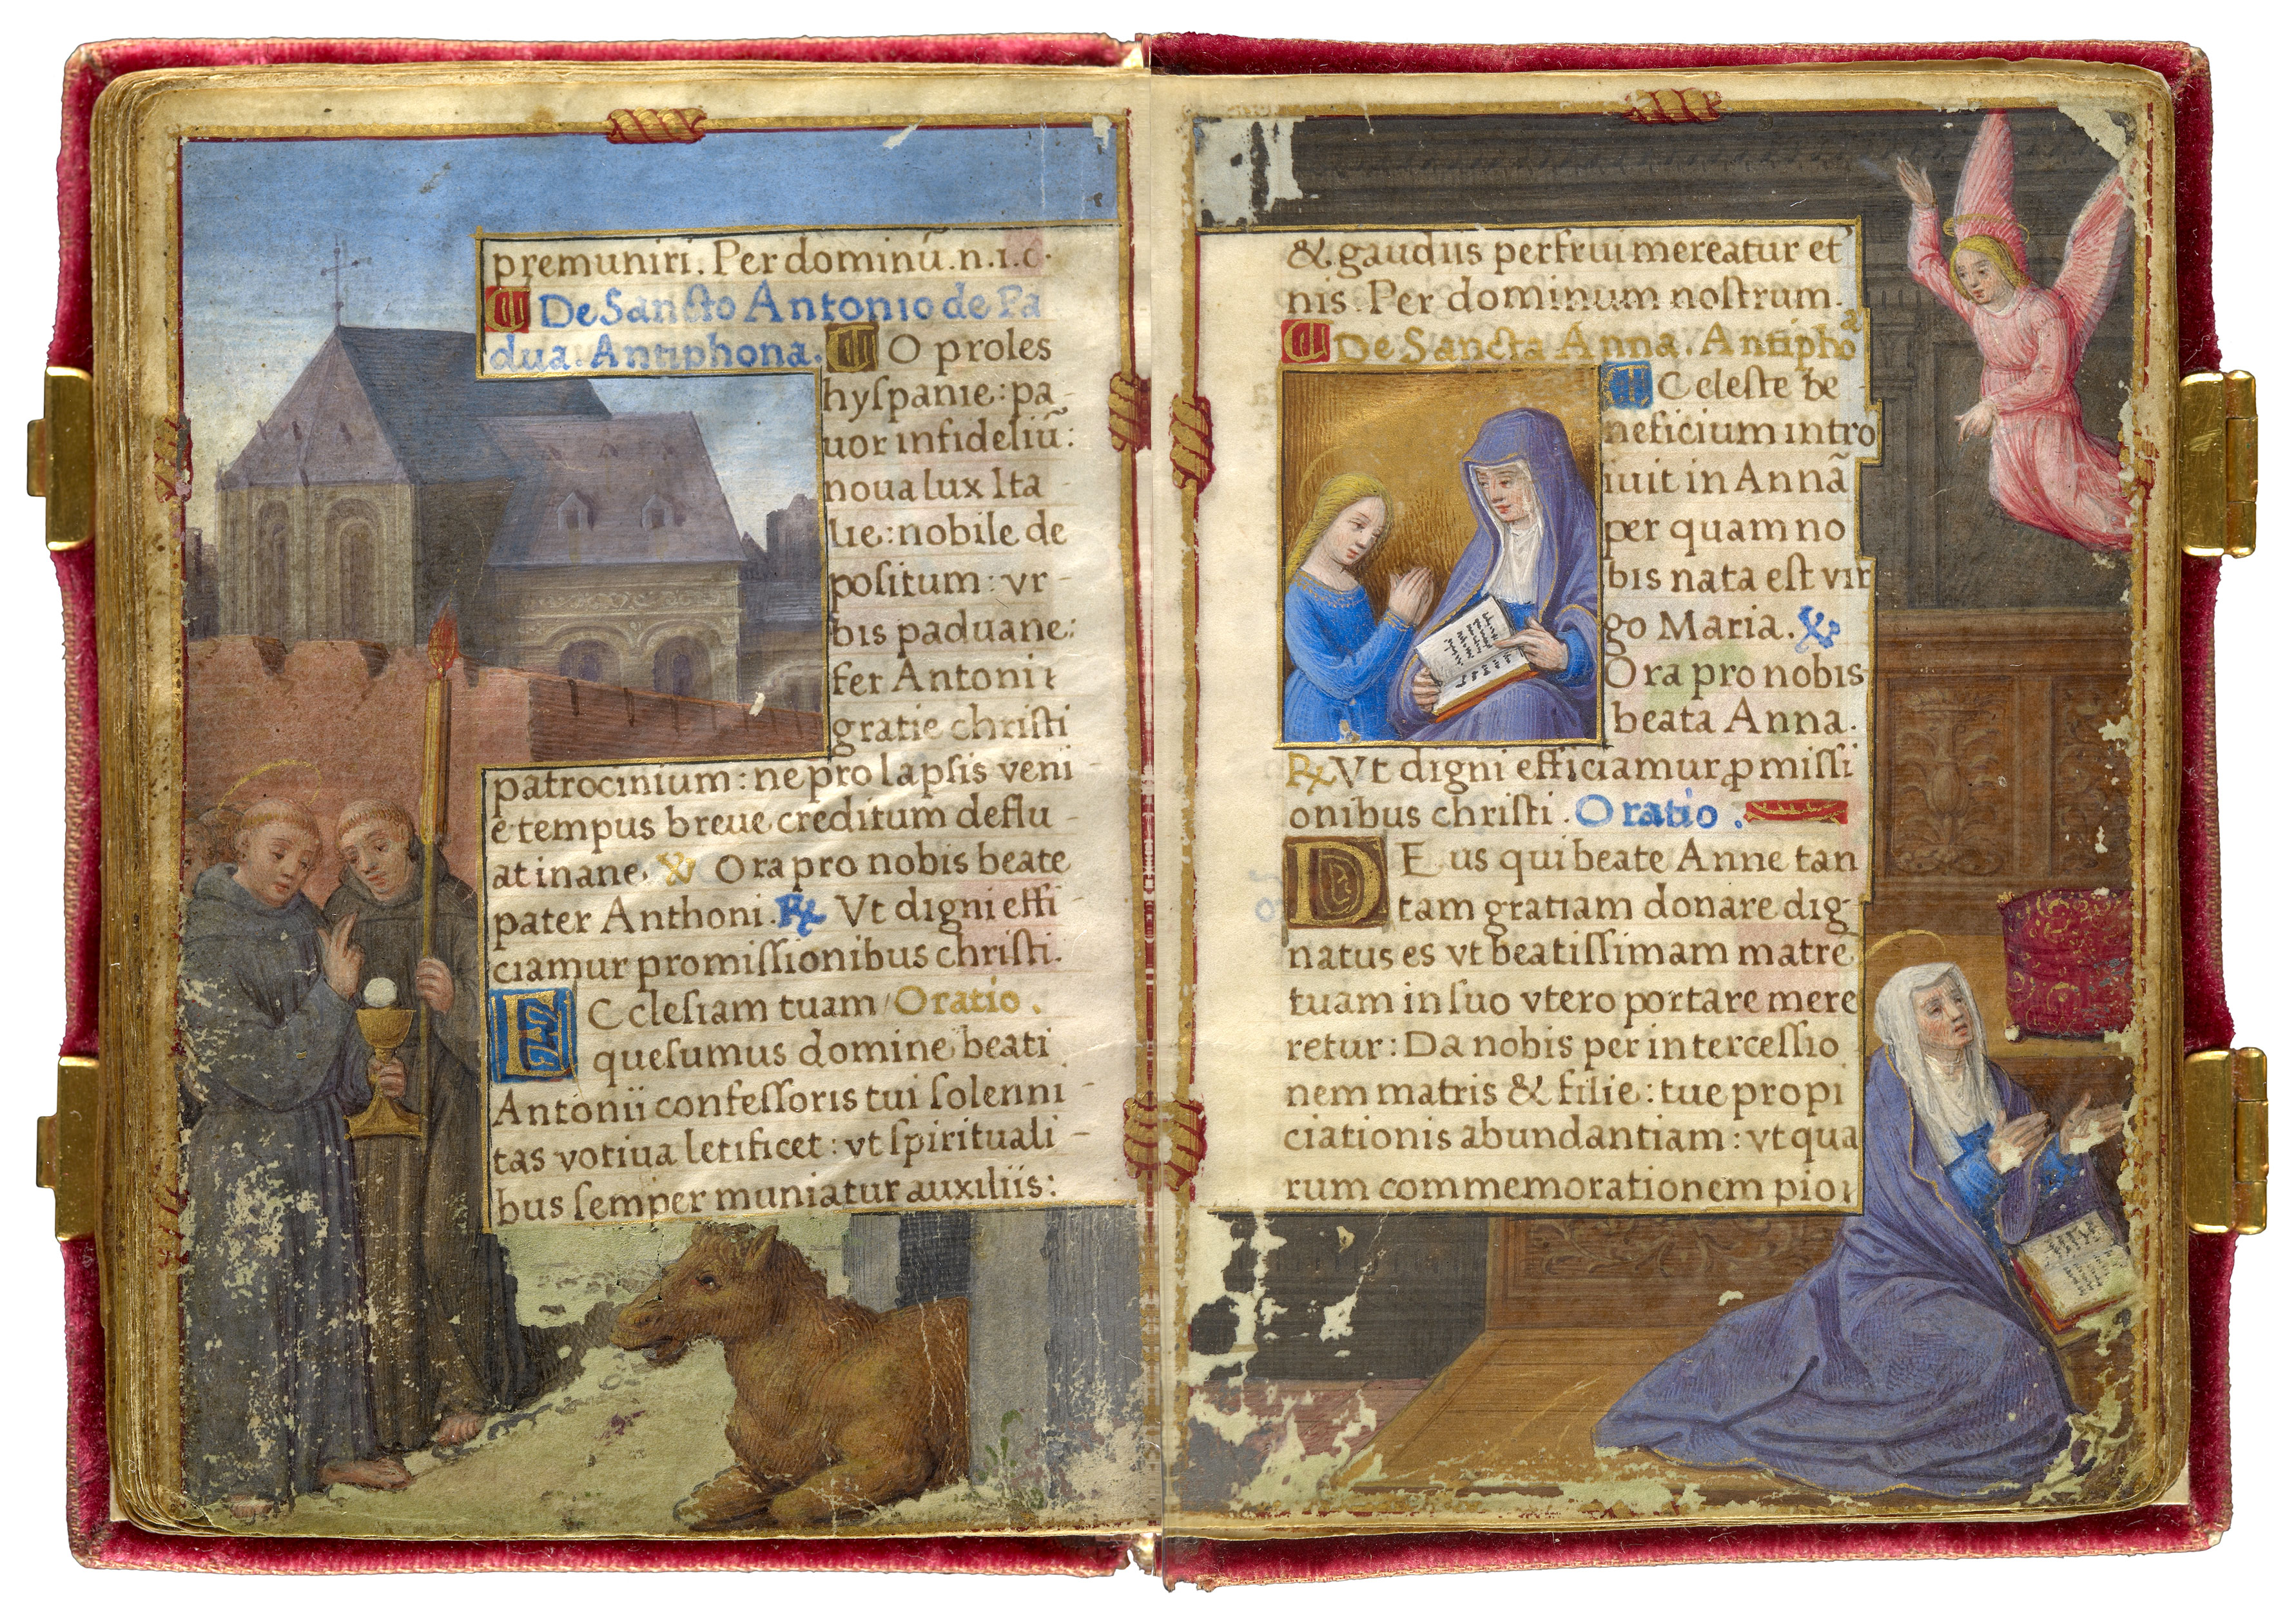 premuniri. Per dominū. n. i. c.
De Sancto Antonio de Pa
dua. Antiphona. O proles
hyſpanie: pa-
uor infideliū:
noua lux Ita-
lie: nobile de
poſitum: vr-
bis paduane:
fer Antoni
gratie chriſti
patrocinium: ne pro lapſis veni-
e tempus breue creditum deflu-
at inane. ℣ Ora pro nobis beate
pater Anthoni. ℟ Vt digni effi-
ciamur promiſſionibus chriſti.
ECcleſiam tuam / Oratio.
queſumus domine beati
Antonii confeſſoris tui ſolenni-
tas votiua letificet: vt ſpirituali-
bus ſemper muniatur auxiliis:
& gaudiis perfrui mereatur et
nis. Per dominum noſtrum.
De Sancta Anna. Antiphoᵃ
Celeſte be-
neficium intro
iuit in Annã
per quam no
bis nata eſt vir
go Maria. ℣
Ora pro nobis
beata Anna.
℟ Vt digni efficiamur ꝓmiſſi
onibus chriſti. Oratio.
DEus qui beate Anne tan
tam gratiam donare dig-
natus es vt beatiſſimam matrē
tuam in ſuo vtero portare mere
retur: Da nobis per interceſſio
nem matris & filie: tue propi
ciationis abundantiam: vt qua
rum commemorationem pio